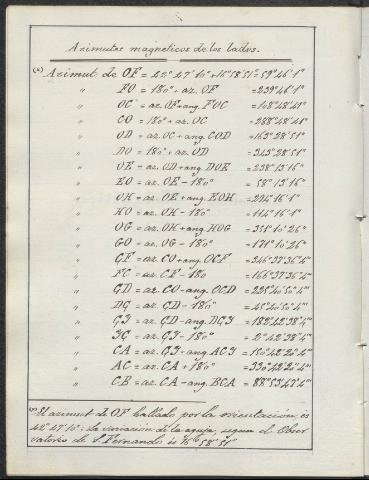 Azimutes magneticos de los lados.
(*) Azimut de OF = 42° 47' 10" + 16° 58' 51" = 59° 46' 1"
" FO = 180° + az. OF = 239° 46' 1"
" OC = az. OF + ang. FOC = 108° 48' 41"
" CO = 180° + az. OC = 288° 48' 41"
" OD = az. OC + ang. COD = 163° 28' 51"
" DO = 180° + az. OD = 343° 28' 51"
" OE = az. OD + ang. DOE = 238° 13' 16"
" EO = az. OE - 180° = 58° 13' 16"
" OH = az. OE + ang. EOH = 294° 16' 1"
" HO = az. OH - 180° = 114° 16' 1"
" OG = az. OH + ang. HOG = 351° 10' 26"
" GO = az. OG - 180° = 171° 10' 26"
" CF = az. CO + ang. OCF = 346° 37' 36,4"
" FC = az. CF - 180 = 166° 37' 36,4"
" CD = az. CO - ang. OCD = 225° 40' 50,4"
" DC = az. CD - 180° = 45° 40' 50,4"
" CJ = az. CD - ang. DCJ = 182° 42' 38,4"
" JC = az. CJ - 180° = 2° 42' 38,4"
" CA = az. CJ - ang. ACJ = 150° 42' 22,4"
" AC = az. CA + 180° = 330° 42' 22,4"
" CB = az. CA - ang. BCA = 88° 53' 43,4"
(*) El azimut de OF hallado por la orientación, es
42° 47' 10": La variación de la aguja, segun el Obser
vatorio de S. Fernando es 16° 58' 51"